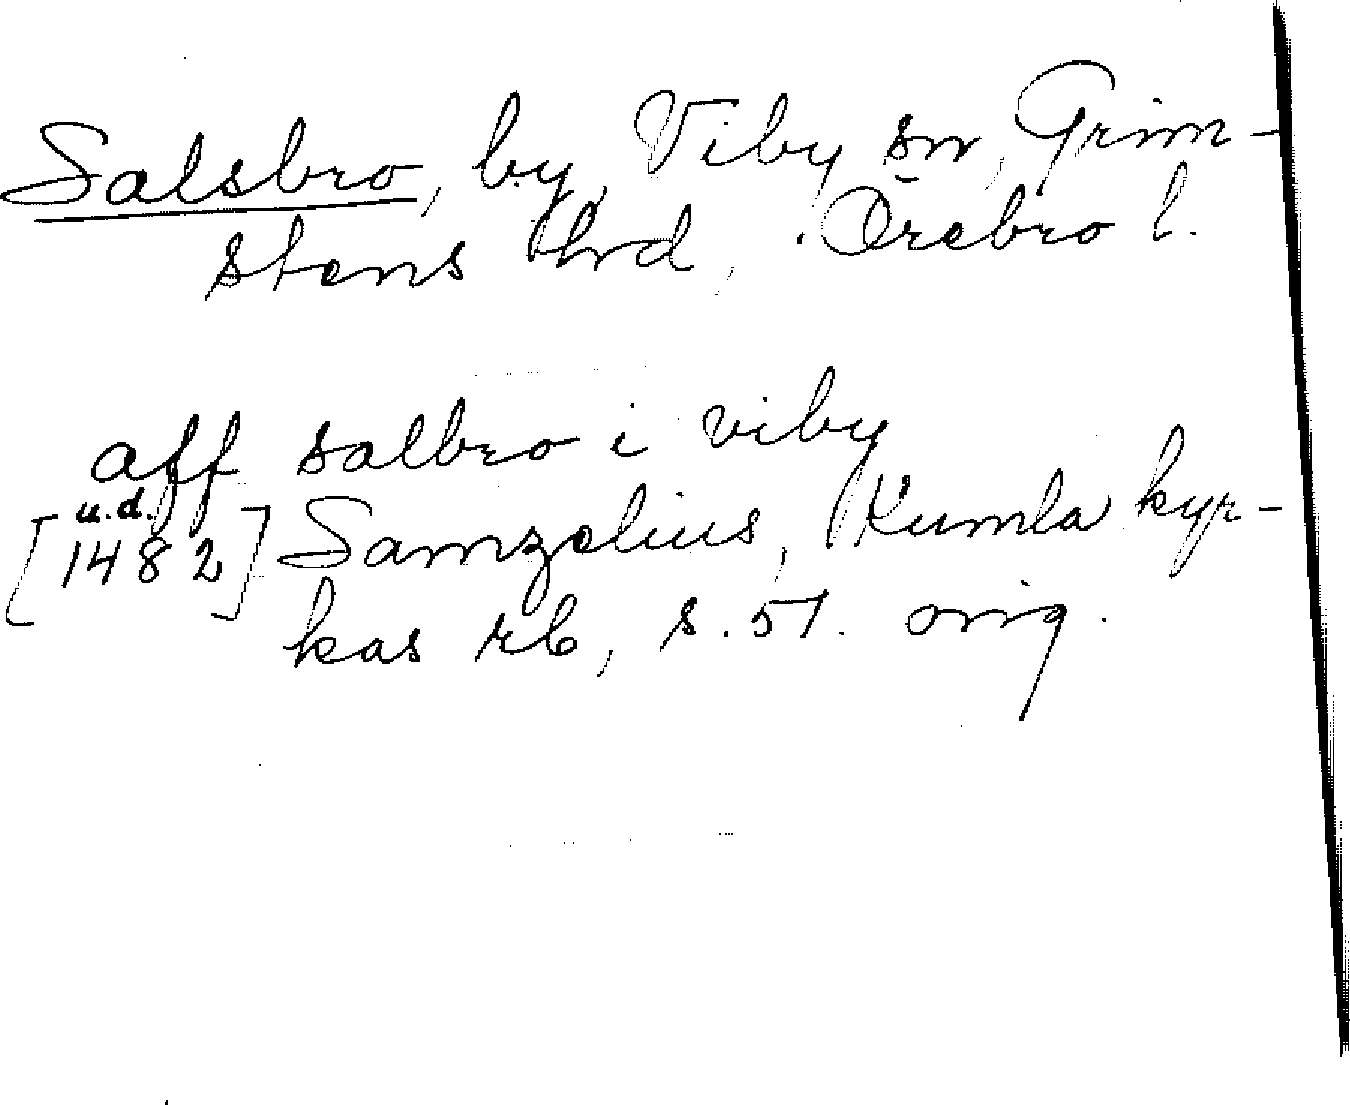 Salsbro, by, Viby sn, Grim-
stens hrd, Örebro l.
aff salbro i viby
[u.d. 1482] Samzelius, Kumla kyr-
kas rb, s. 51. orig.